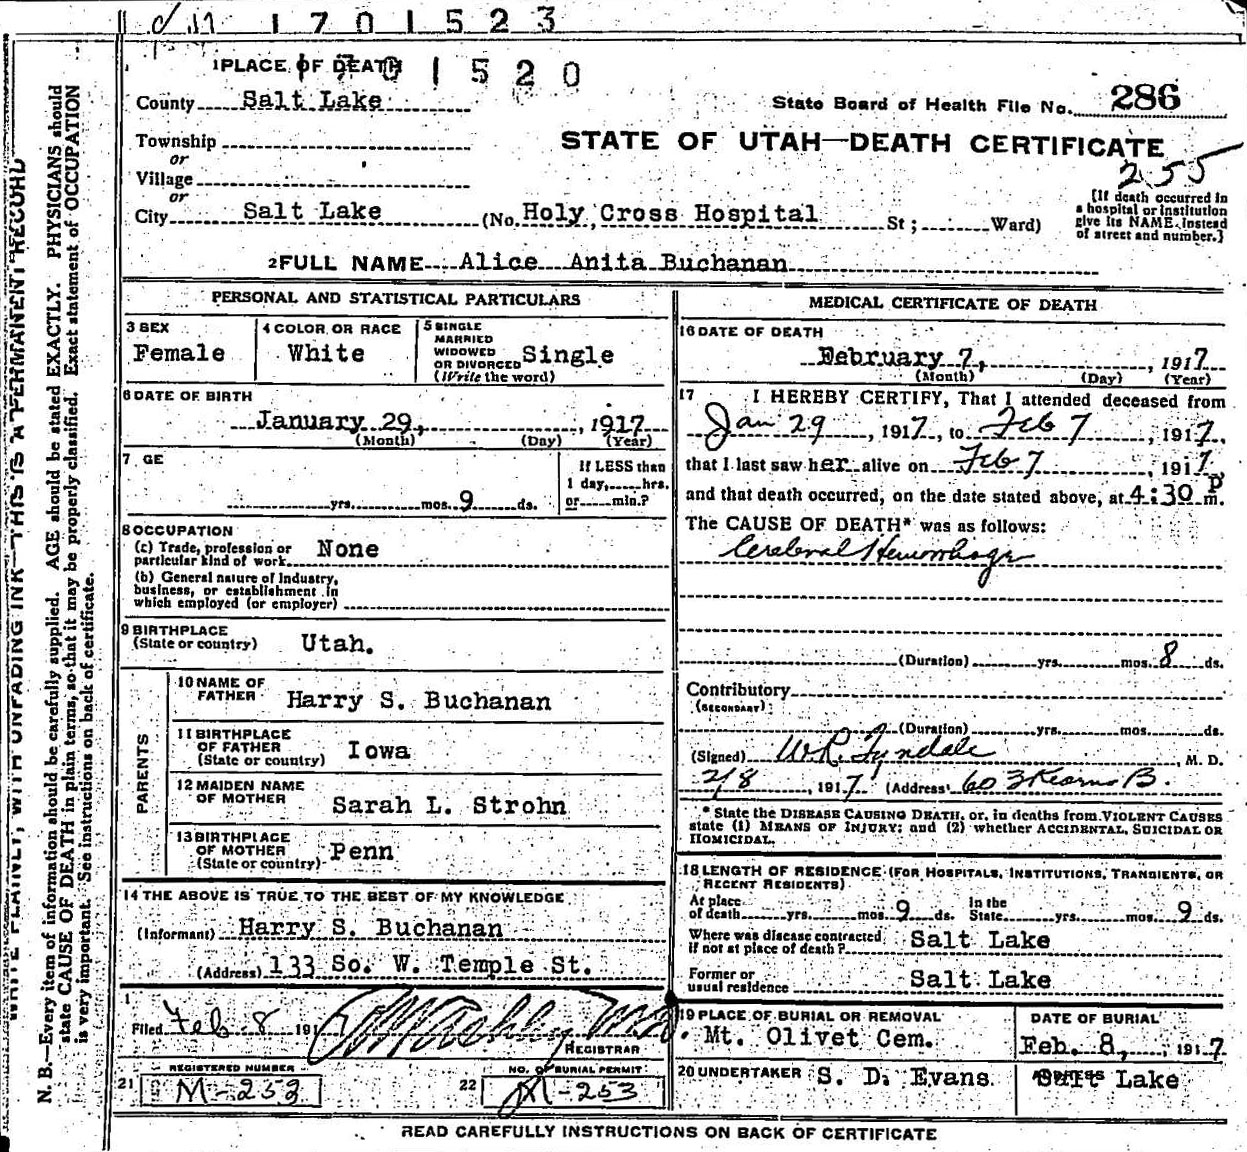 1701523
1 PLACE OF DEATH 1701520
County Salt Lake
State Board of Health File No. 286
Township
STATE OF UTAH—DEATH CERTIFICATE
or
Village
255
or
City Salt Lake (No. Holy Cross Hospital St; Ward)
[If death occurred in
a hospital or institution
give its NAME instead
of street and number.]
2 FULL NAME Alice Anita Buchanan
PERSONAL AND STATISTICAL PARTICULARS
3 SEX
Female
4 COLOR OR RACE
White
5 SINGLE
MARRIED
WIDOWED
OR DIVORCED
(Write the word)
Single
6 DATE OF BIRTH
January 29, , 1917
(Month) (Day) (Year)
7 GE
yrs. mos. 9 ds.
If LESS than
1 day, hrs.
or min.?
8 OCCUPATION
(c) Trade, profession or
particular kind of work None
(b) General nature of industry,
business, or establishment in
which employed (or employer)
9 BIRTHPLACE
(State or country) Utah.
PARENTS
10 NAME OF
FATHER Harry S. Buchanan
11 BIRTHPLACE
OF FATHER
(State or country) Iowa
12 MAIDEN NAME
OF MOTHER Sarah L. Strohn
13 BIRTHPLACE
OF MOTHER
(State or country) Penn
14 THE ABOVE IS TRUE TO THE BEST OF MY KNOWLEDGE
(Informant) Harry S. Buchanan
(Address) 133 So. W. Temple St.
Filed Feb 8 1917
REGISTRAR
REGISTERED NUMBER
21 M-253
NO. OF BURIAL PERMIT
22 M-253
MEDICAL CERTIFICATE OF DEATH
16 DATE OF DEATH
February 7, , 1917
(Month) (Day) (Year)
17 I HEREBY CERTIFY, That I attended deceased from
Jan 29, 1917, to Feb 7, 1917,
that I last saw her alive on Feb 7, 1917,
and that death occurred, on the date stated above, at 4:30 P m.
The CAUSE OF DEATH* was as follows:
Cerebral Hemorrhage
(Duration) yrs. mos. 8 ds.
Contributory
(SECONDARY)
(Duration) yrs. mos. ds.
(Signed) W.R. Tyndale, M. D.
2/8, 1917 (Address) 603 Kearns B.
* State the DISEASE CAUSING DEATH, or, in deaths from VIOLENT CAUSES
state (1) MEANS OF INJURY; and (2) whether ACCIDENTAL, SUICIDAL OR
HOMICIDAL.
18 LENGTH OF RESIDENCE (FOR HOSPITALS, INSTITUTIONS, TRANSIENTS, OR
RECENT RESIDENTS)
At place
of death yrs. mos. 9 ds.
In the
State yrs. mos. 9 ds.
Where was disease contracted
if not at place of death? Salt Lake
Former or
usual residence Salt Lake
19 PLACE OF BURIAL OR REMOVAL
Mt. Olivet Cem.
DATE OF BURIAL
Feb. 8, , 1917
20 UNDERTAKER S. D. Evans
ADDRESS
Salt Lake
READ CAREFULLY INSTRUCTIONS ON BACK OF CERTIFICATE
WRITE PLAINLY, WITH UNFADING INK—THIS IS A PERMANENT RECORD
N. B.—Every item of information should be carefully supplied. AGE should be stated EXACTLY. PHYSICIANS should
state CAUSE OF DEATH in plain terms, so that it may be properly classified. Exact statement of OCCUPATION
is very important. See instructions on back of certificate.